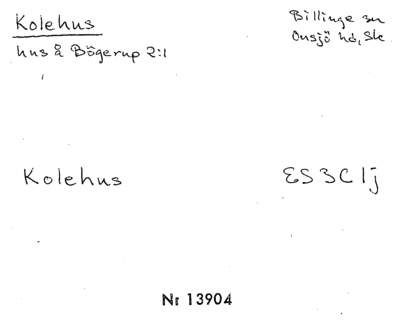 Kolehus
Billinge sn
hus å Bögerup 2:1
Onsjö hd, Sk
Kolehus
ES3C1j
Nr 13904